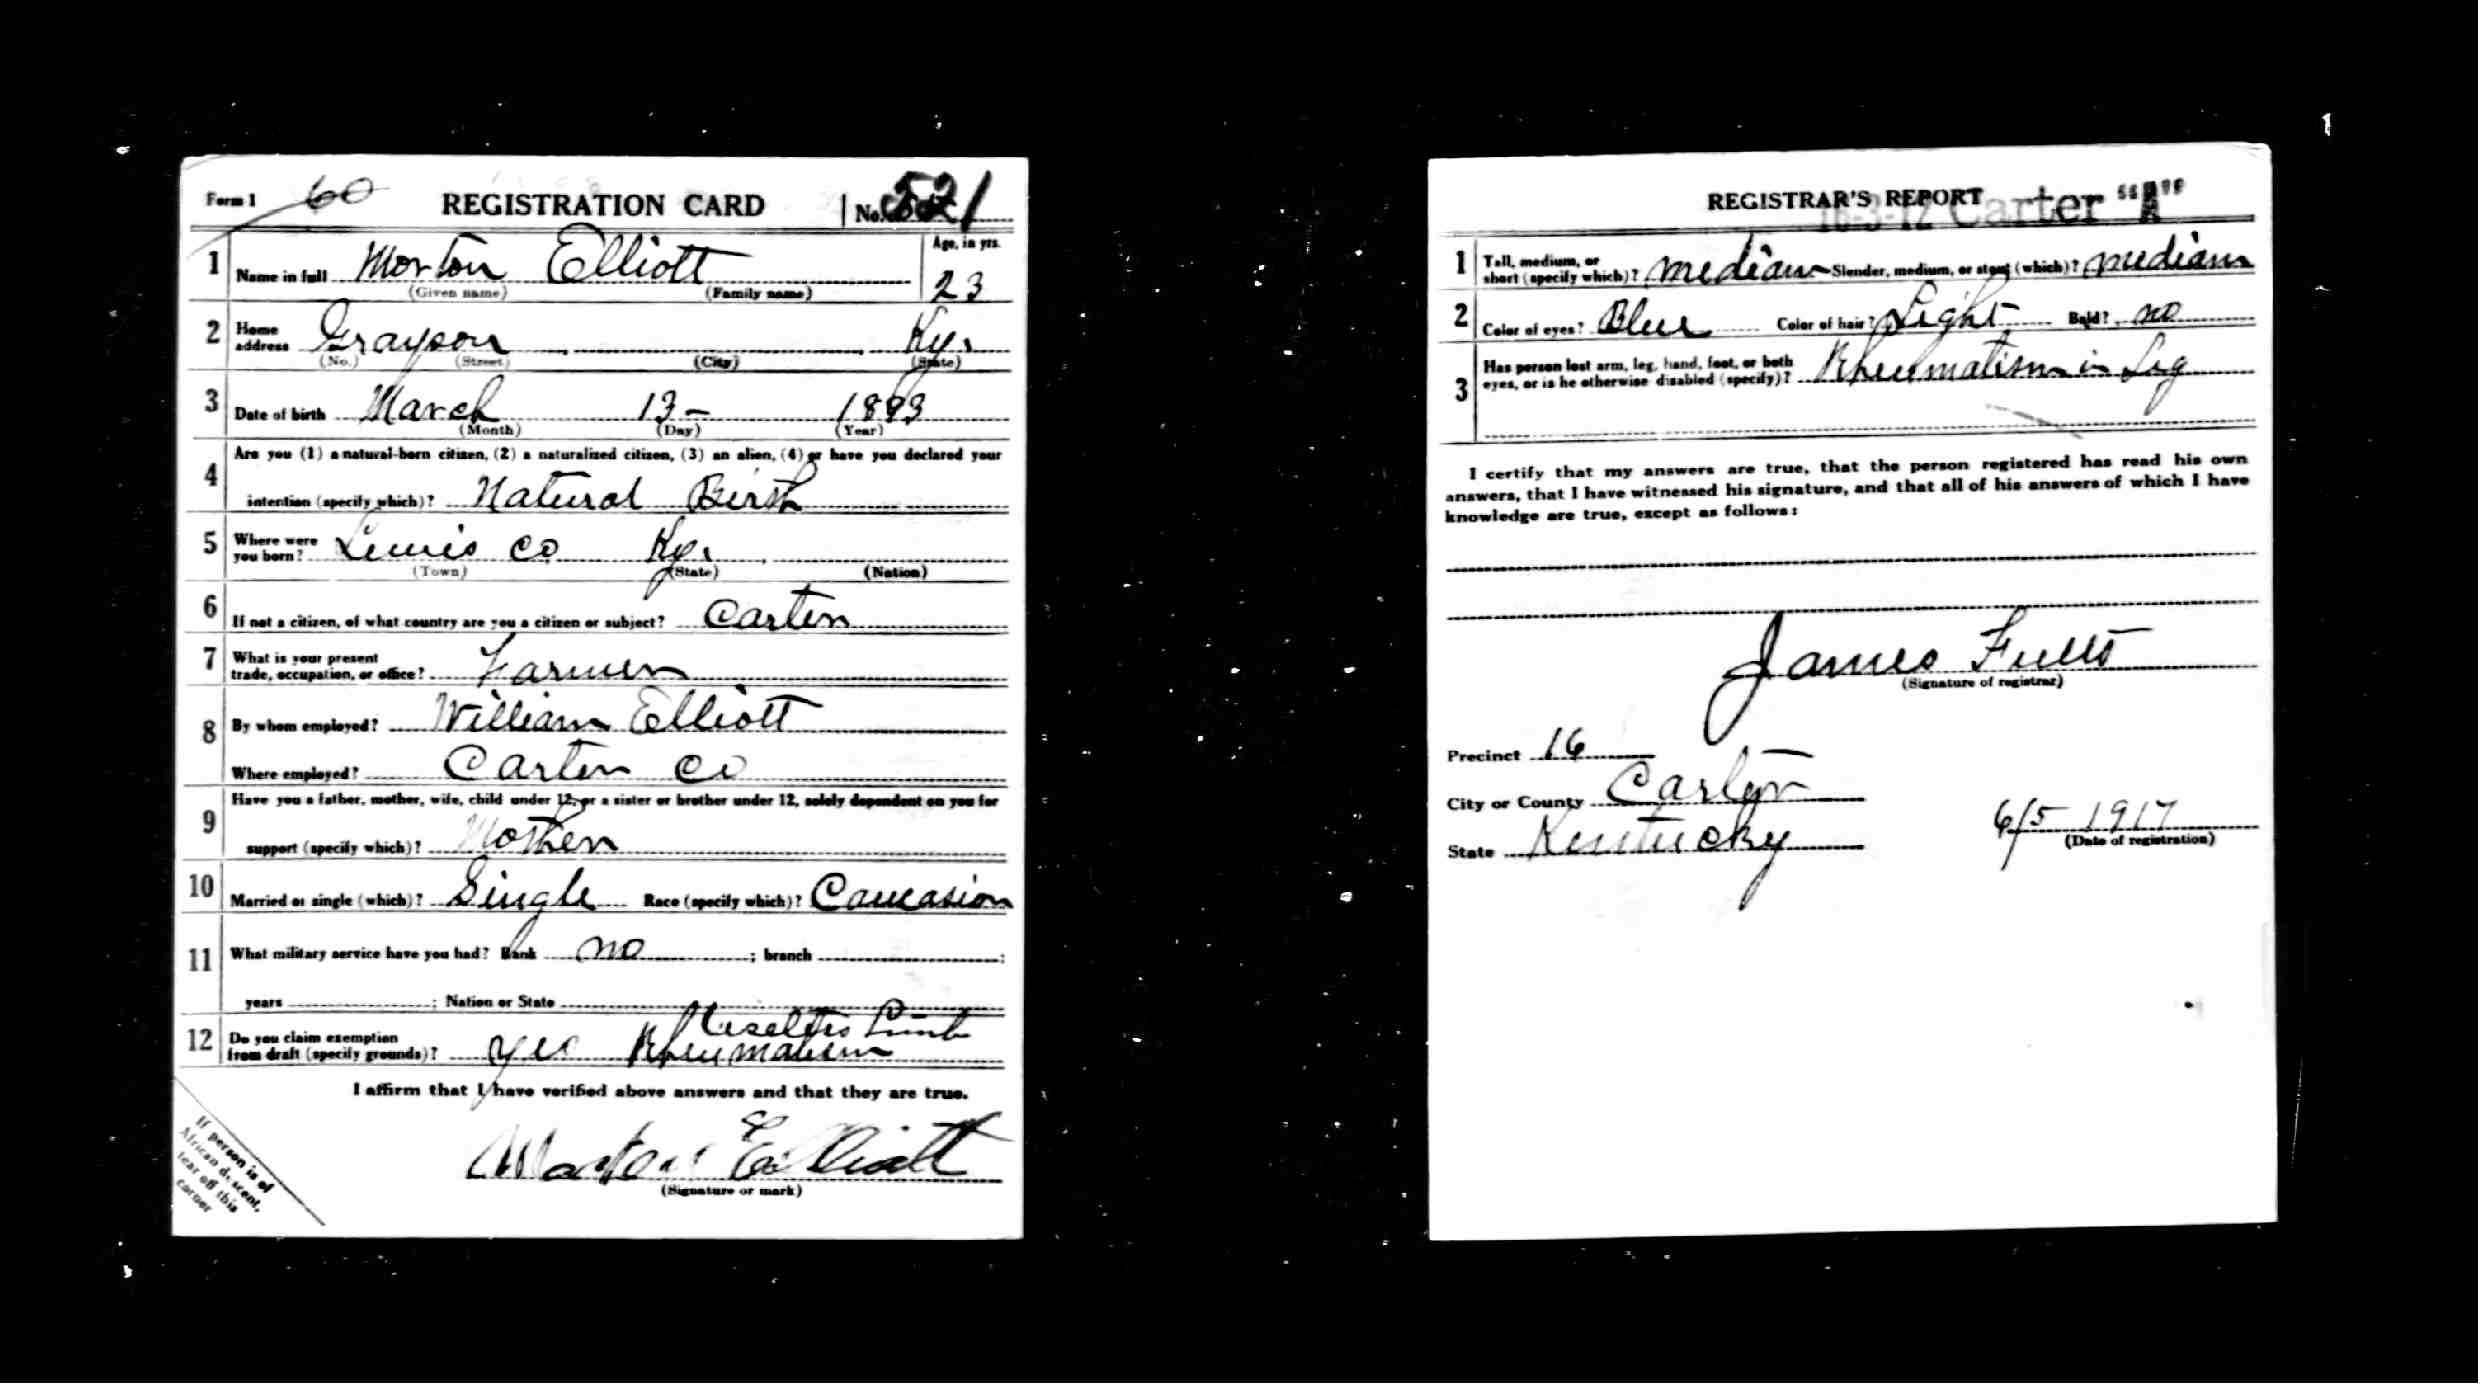 Form 1 60 REGISTRATION CARD No. 521
1 Name in full Morton Elliott Age, in yrs. 23
(Given name) (Family name)
2 Home address Grayson Ky.
(No.) (Street) (City) (State)
3 Date of birth March 13- 1893
(Month) (Day) (Year)
4 Are you (1) a natural-born citizen, (2) a naturalized citizen, (3) an alien, (4) or have you declared your
intention (specify which)? Natural Birth
5 Where were you born? Lewis co Ky.
(Town) (State) (Nation)
6 If not a citizen, of what country are you a citizen or subject? Carter
7 What is your present trade, occupation, or office? Farmer
8 By whom employed? William Elliott
Where employed? Carter co
9 Have you a father, mother, wife, child under 12, or a sister or brother under 12, solely dependent on you for
support (specify which)? Mother
10 Married or single (which)? Single Race (specify which)? Caucasion
11 What military service have you had? Rank no ; branch ;
years ; Nation or State
12 Do you claim exemption from draft (specify grounds)? yes Rheumatism Limb
I affirm that I have verified above answers and that they are true.
Morton Elliott
(Signature or mark)
If person is of
African descent,
tear off this
corner
REGISTRAR'S REPORT
16-3-17 Carter "A"
1 Tall, medium, or short (specify which)? medium Slender, medium, or stout (which)? medium
2 Color of eyes? Blue Color of hair? Light Bald? no
3 Has person lost arm, leg, hand, foot, or both
eyes, or is he otherwise disabled (specify)? Rheumatism in Leg
I certify that my answers are true, that the person registered has read his own
answers, that I have witnessed his signature, and that all of his answers of which I have
knowledge are true, except as follows:
James Fults
(Signature of registrar)
Precinct 16
City or County Carter
State Kentucky
6/5 1917
(Date of registration)